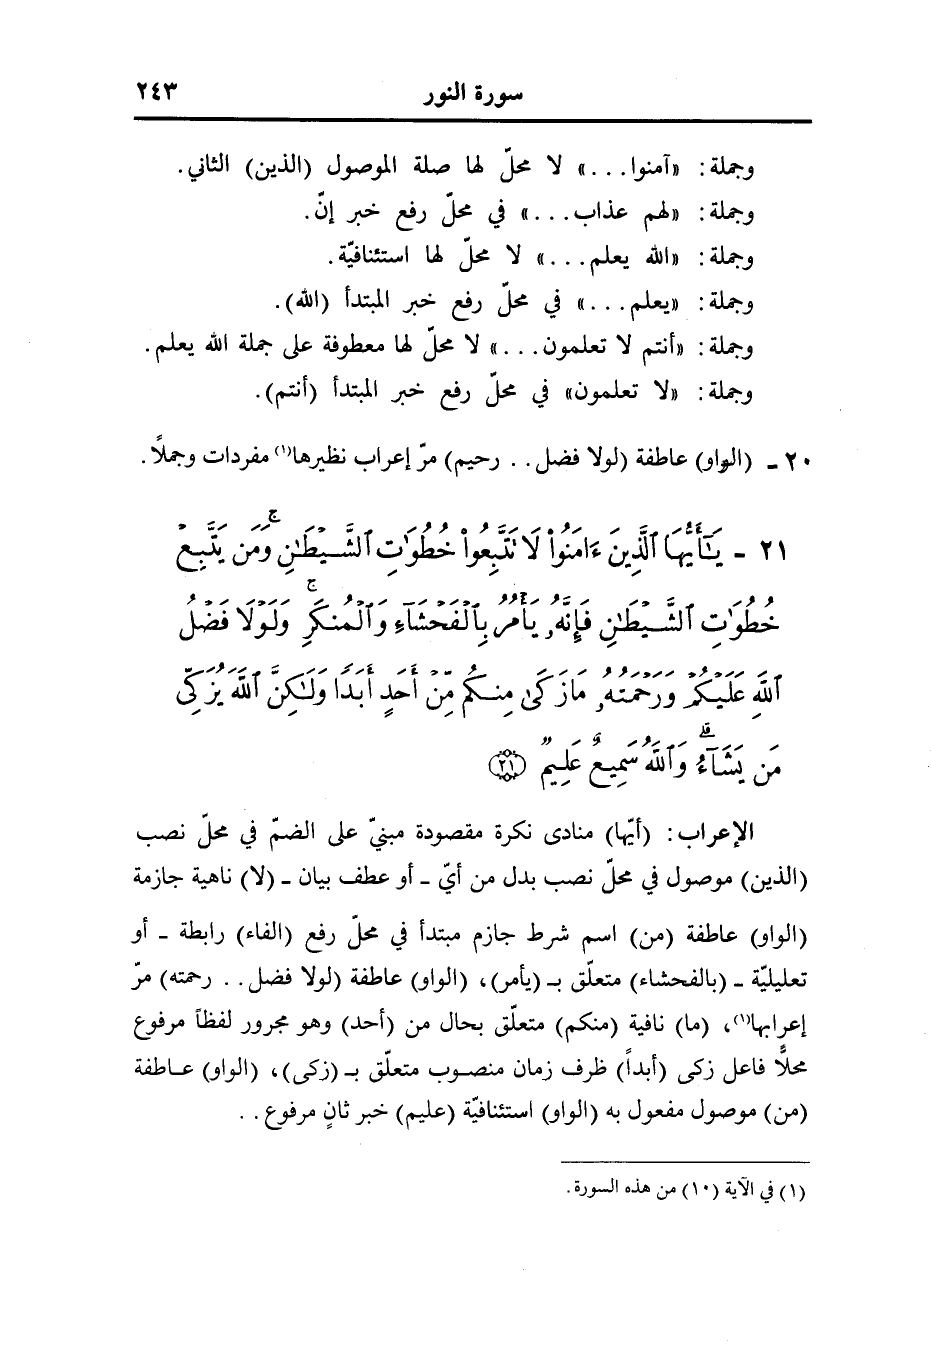 سورة النور ٢٤٣
وجملة: «آمنوا...» لا محلّ لها صلة الموصول (الذين) الثاني.
وجملة: «لهم عذاب...» في محلّ رفع خبر إنّ.
وجملة: «الله يعلم...» لا محلّ لها استئنافيّة.
وجملة: «يعلم...» في محلّ رفع خبر المبتدأ (الله).
وجملة: «أنتم لا تعلمون...» لا محلّ لها معطوفة على جملة الله يعلم.
وجملة: «لا تعلمون» في محلّ رفع خبر المبتدأ (أنتم).
٢٠ ـ (الواو) عاطفة (لولا فضل.. رحيم) مرّ إعراب نظيرها(١) مفردات وجملاً.
٢١ ـ يَٰٓأَيُّهَا ٱلَّذِينَ ءَامَنُوا۟ لَا تَتَّبِعُوا۟ خُطُوَٰتِ ٱلشَّيْطَٰنِ ۚ وَمَن يَتَّبِعْ
خُطُوَٰتِ ٱلشَّيْطَٰنِ فَإِنَّهُۥ يَأْمُرُ بِٱلْفَحْشَآءِ وَٱلْمُنكَرِ ۚ وَلَوْلَا فَضْلُ
ٱللَّهِ عَلَيْكُمْ وَرَحْمَتُهُۥ مَا زَكَىٰ مِنكُم مِّنْ أَحَدٍ أَبَدًا وَلَٰكِنَّ ٱللَّهَ يُزَكِّى
مَن يَشَآءُ ۗ وَٱللَّهُ سَمِيعٌ عَلِيمٌ ﴿٢١﴾
الإعراب: (أيّها) منادى نكرة مقصودة مبنيّ على الضمّ في محلّ نصب
(الذين) موصول في محلّ نصب بدل من أيّ ـ أو عطف بيان ـ (لا) ناهية جازمة
(الواو) عاطفة (من) اسم شرط جازم مبتدأ في محلّ رفع (الفاء) رابطة ـ أو
تعليليّة ـ (بالفحشاء) متعلّق بـ (يأمر)، (الواو) عاطفة (لولا فضل.. رحمته) مرّ
إعرابها(١)، (ما) نافية (منكم) متعلّق بحال من (أحد) وهو مجرور لفظاً مرفوع
محلًّا فاعل زكى (أبداً) ظرف زمان منصوب متعلّق بـ (زكى)، (الواو) عاطفة
(من) موصول مفعول به (الواو) استئنافيّة (عليم) خبر ثانٍ مرفوع..
(١) في الآية (١٠) من هذه السورة.